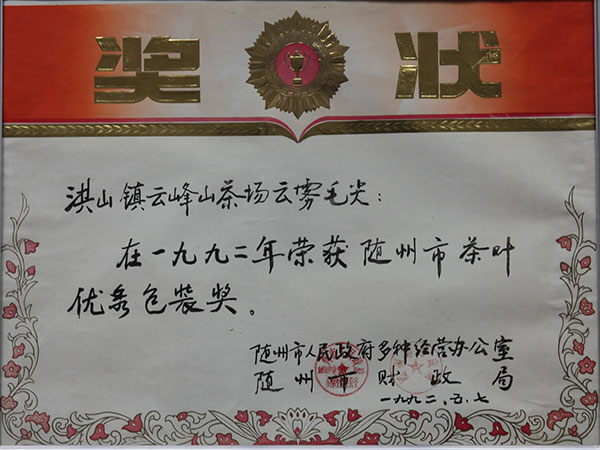 奖状
洪山镇云峰山茶场云雾毛尖:
在一九九二年荣获随州市茶叶
优秀包装奖。
随州市人民政府多种经营办公室
随州市财政局
一九九二.五.七